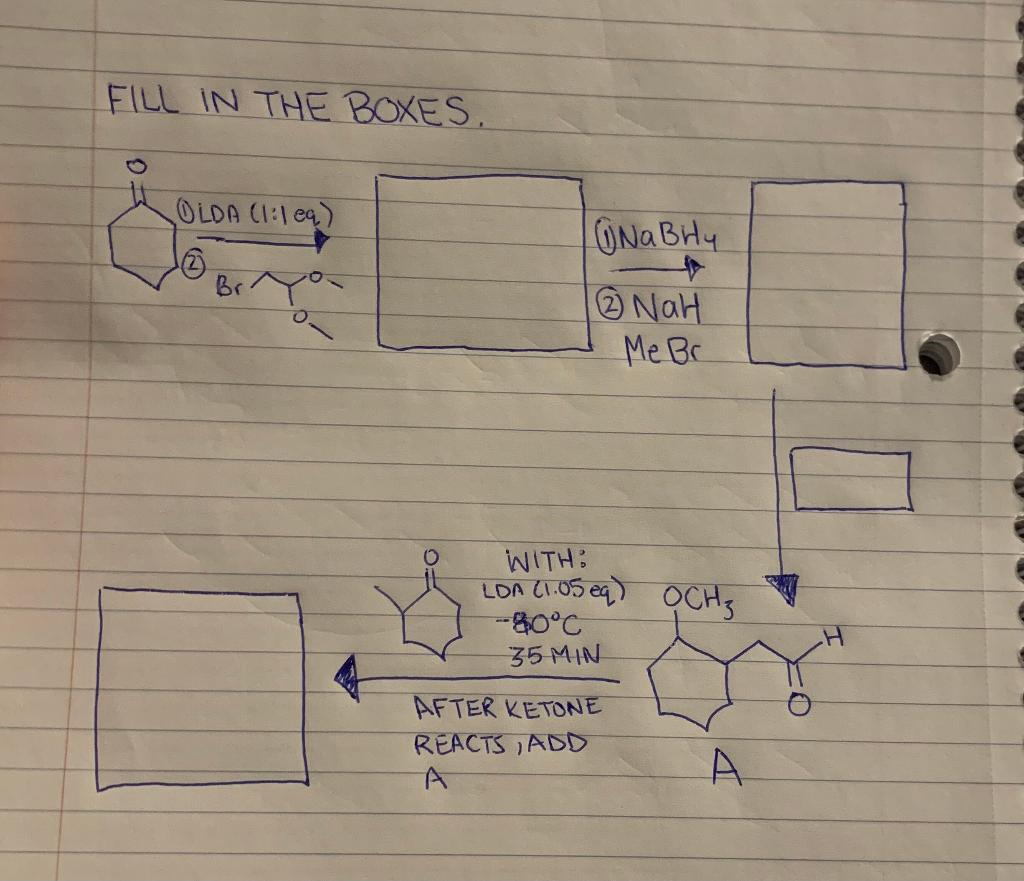 FILL IN THE BOXES.
O
① LDA (1:1 eq)
②
Br
O
O
① NaBH4
② NaH
MeBr
O
WITH:
LDA (1.05 eq)
-80°C
35 MIN
AFTER KETONE
REACTS, ADD
A
OCH3
H
O
A